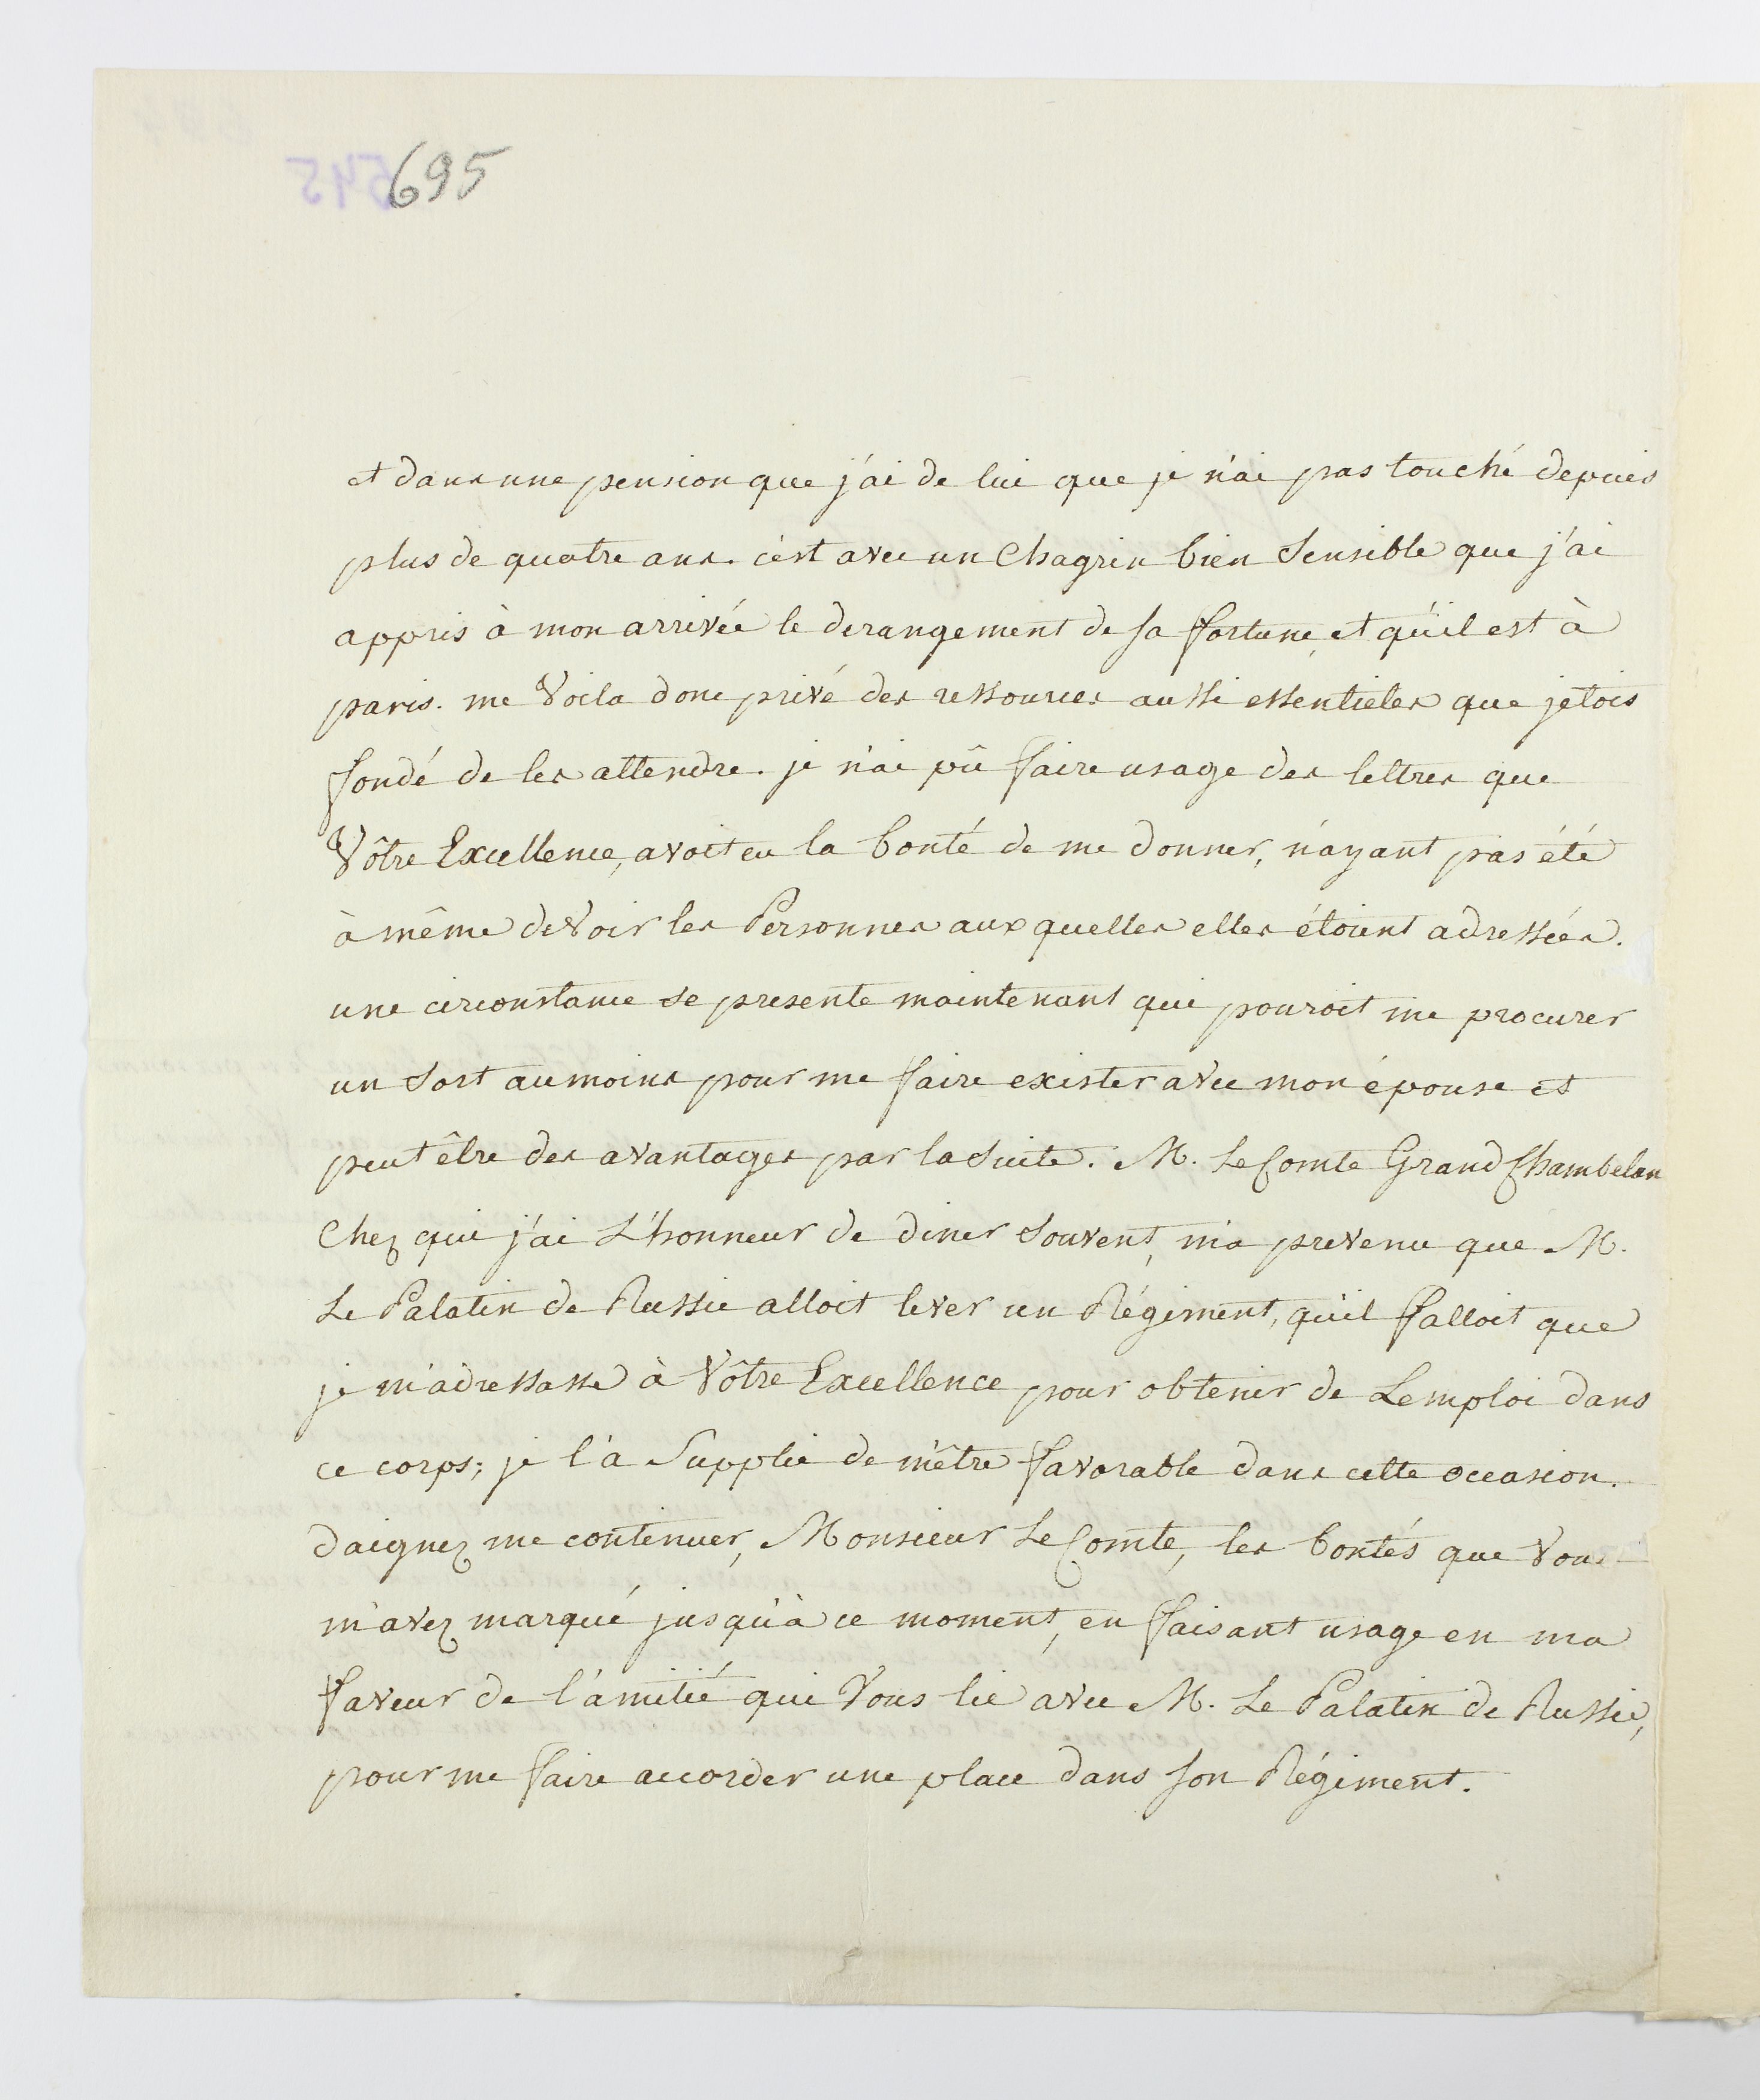 695
et dans une pension que j'ai de lui que je n'ai pas touché depuis
plus de quatre ans. c'est avec un Chagrin bien Sensible que j'ai
appris à mon arrivée le derangement de sa fortune, et qu'il est à
paris. me Voila donc privé des ressources aussi essentieles que j'etois
fondé de les attendre. je n'ai pû faire usage des lettres que
Vôtre Excellence, avoit eu la bonté de me donner, n'ayant pas été
à même de Voir les Personnes aux quelles elles étoient adressées.
une circonstance se presente maintenant qui pouroit me procurer
un Sort au moins pour me faire exister avec mon épouse et
peut être des avantages par la Suite. M. Le Comte Grand Chambelan
Chez qui j'ai L'honneur de diner Souvent, m'a prevenu que M.
Le Palatin de Russie alloit lever un Régiment, qu'il falloit que
je m'adressasse à Vôtre Excellence pour obtenir de Lemploi dans
ce corps; je l'a Supplie de m'être favorable dans cette occasion.
daignez me continuer, Monsieur Le Comte, les bontés que Vous
m'avez marqué jusqu'à ce moment, en faisant usage en ma
faveur de l'amitié qui Vous lie avec M. Le Palatin de Russie,
pour me faire accorder une place dans son Régiment.